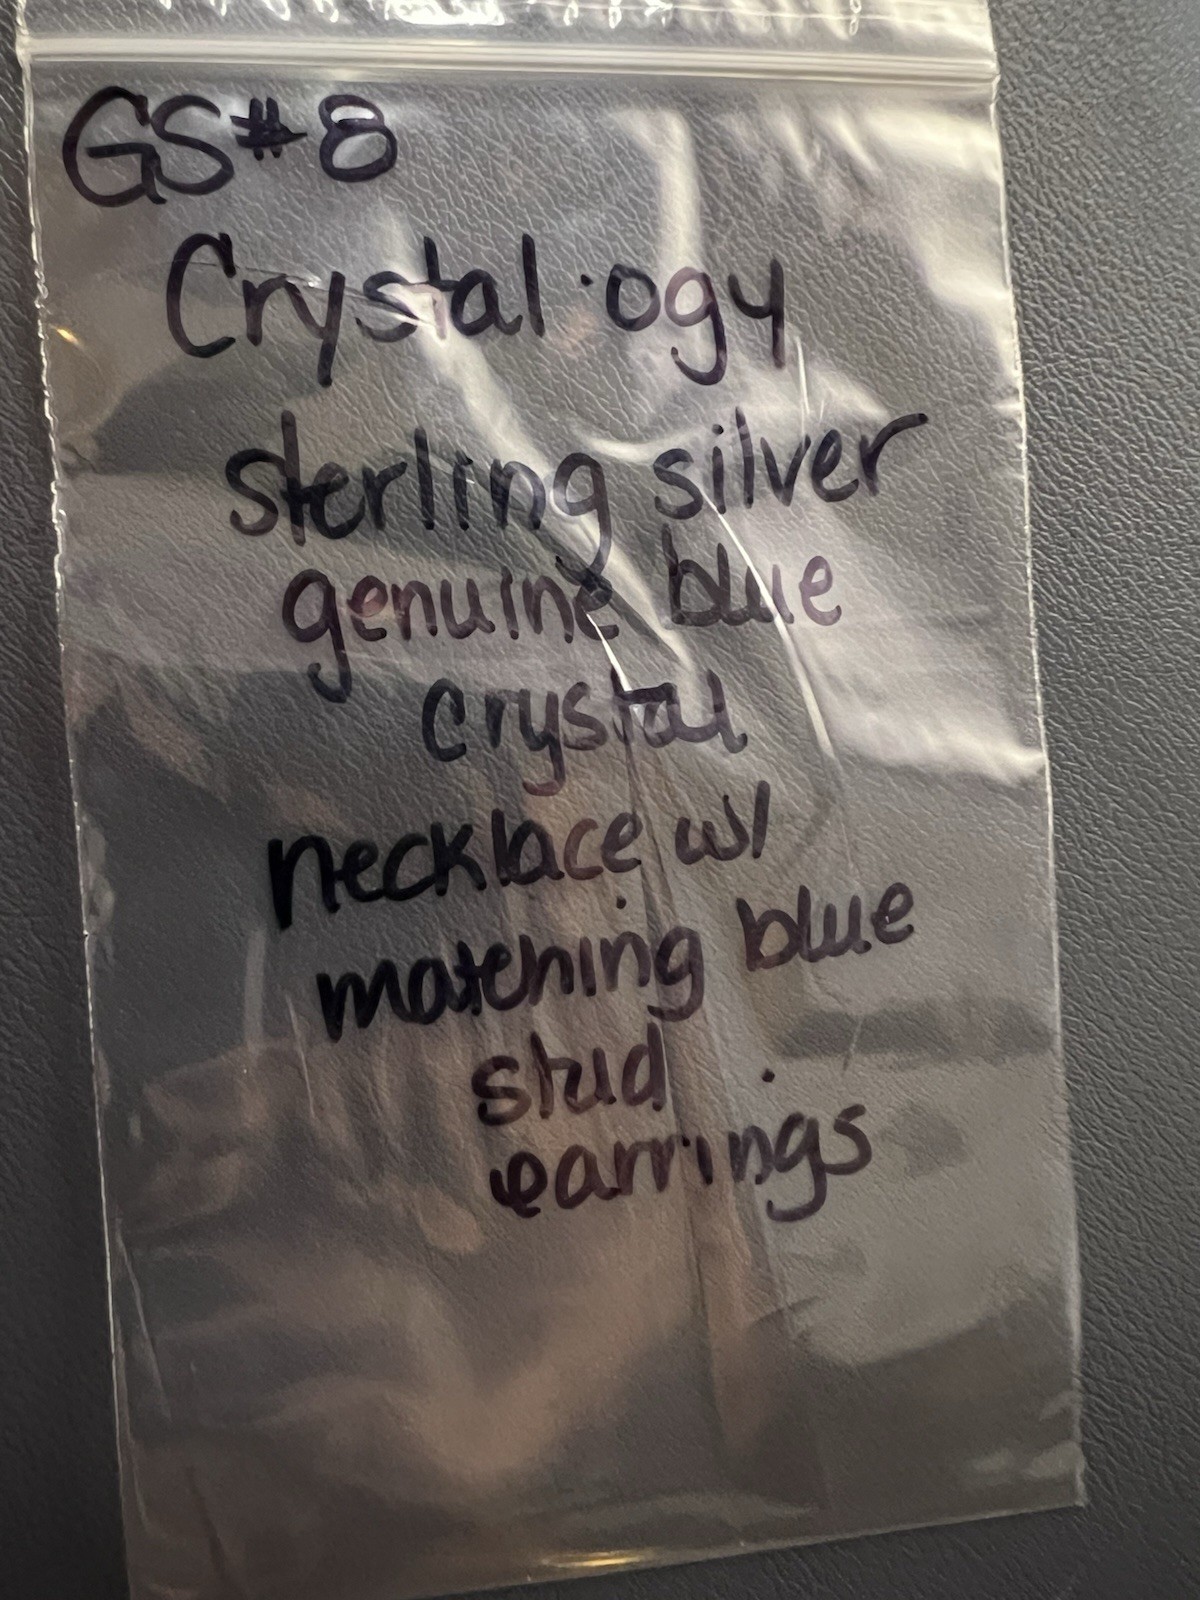 GS#8
Crystal·ogy
sterling silver
genuine blue
crystal
necklace w/
matching blue
stud
earrings